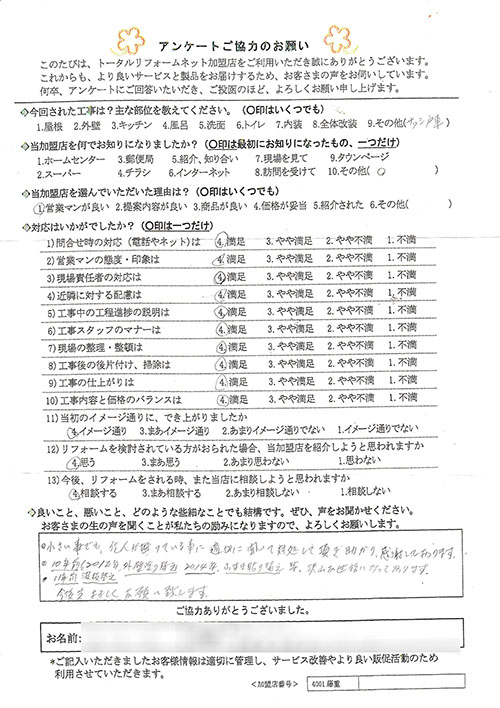 アンケートご協力のお願い
このたびは、トータルリフォームネット加盟店をご利用いただき誠にありがとうございます。
これからも、より良いサービスと製品をお届けするため、お客さまの声をお伺いしています。
何卒、アンケートにご回答いただき、ご投函のほど、よろしくお願い申し上げます。
◇今回された工事は？主な部位を教えてください。（〇印はいくつでも）
1.屋根 2.外壁 3.キッチン 4.風呂 5.洗面 6.トイレ 7.内装 8.全体改装 9.その他(
◇当加盟店を何でお知りになりましたか？（〇印は最初にお知りになったもの、一つだけ）
1.ホームセンター 3.郵便局 5.紹介、知り合い 7.現場を見て 9.タウンページ
2.スーパー 4.チラシ 6.インターネット 8.訪問を受けて 10.その他( )
◇当加盟店を選んでいただいた理由は？（〇印はいくつでも）
1.営業マンが良い 2.提案内容が良い 3.商品が良い 4.価格が妥当 5.紹介された 6.その他( )
◇対応はいかがでしたか？（〇印は一つだけ）
1)問合せ時の対応（電話やネット)は 4.満足 3.やや満足 2.やや不満 1.不満
2)営業マンの態度・印象は 4.満足 3.やや満足 2.やや不満 1.不満
3)現場責任者の対応は 4.満足 3.やや満足 2.やや不満 1.不満
4)近隣に対する配慮は 4.満足 3.やや満足 2.やや不満 1.不満
5)工事中の工程進捗の説明は 4.満足 3.やや満足 2.やや不満 1.不満
6)工事スタッフのマナーは 4.満足 3.やや満足 2.やや不満 1.不満
7)現場の整理・整頓は 4.満足 3.やや満足 2.やや不満 1.不満
8)工事後の後片付け、掃除は 4.満足 3.やや満足 2.やや不満 1.不満
9)工事の仕上がりは 4.満足 3.やや満足 2.やや不満 1.不満
10)工事内容と価格のバランスは 4.満足 3.やや満足 2.やや不満 1.不満
11)当初のイメージ通りに、でき上がりましたか
4.イメージ通り 3.まあイメージ通り 2.あまりイメージ通りでない 1.イメージ通りでない
12)リフォームを検討されている方がおられた場合、当加盟店を紹介しようと思われますか
4.思う 3.まあ思う 2.あまり思わない 1.思わない
13)今後、リフォームをされる時、また当店に相談しようと思われますか
4.相談する 3.まあ相談する 2.あまり相談しない 1.相談しない
◇良いこと、悪いこと、どのような些細なことでも結構です。ぜひ、声をお聞かせください。
お客さまの生の声を聞くことが私たちの励みになりますので、よろしくお願いします。
小さい事でも、住人が困っている事に適切に関して対処して頂き助かり、感謝しております。
10年前(2012年、外壁塗り替え 2014年、
今後共よろしくお願い致します。
ご協力ありがとうございました。
お名前:
*ご記入いただきましたお客様情報は適切に管理し、サービス改善やより良い販促活動のため
利用させていただきます。
＜加盟店番号＞ 4001 藤重